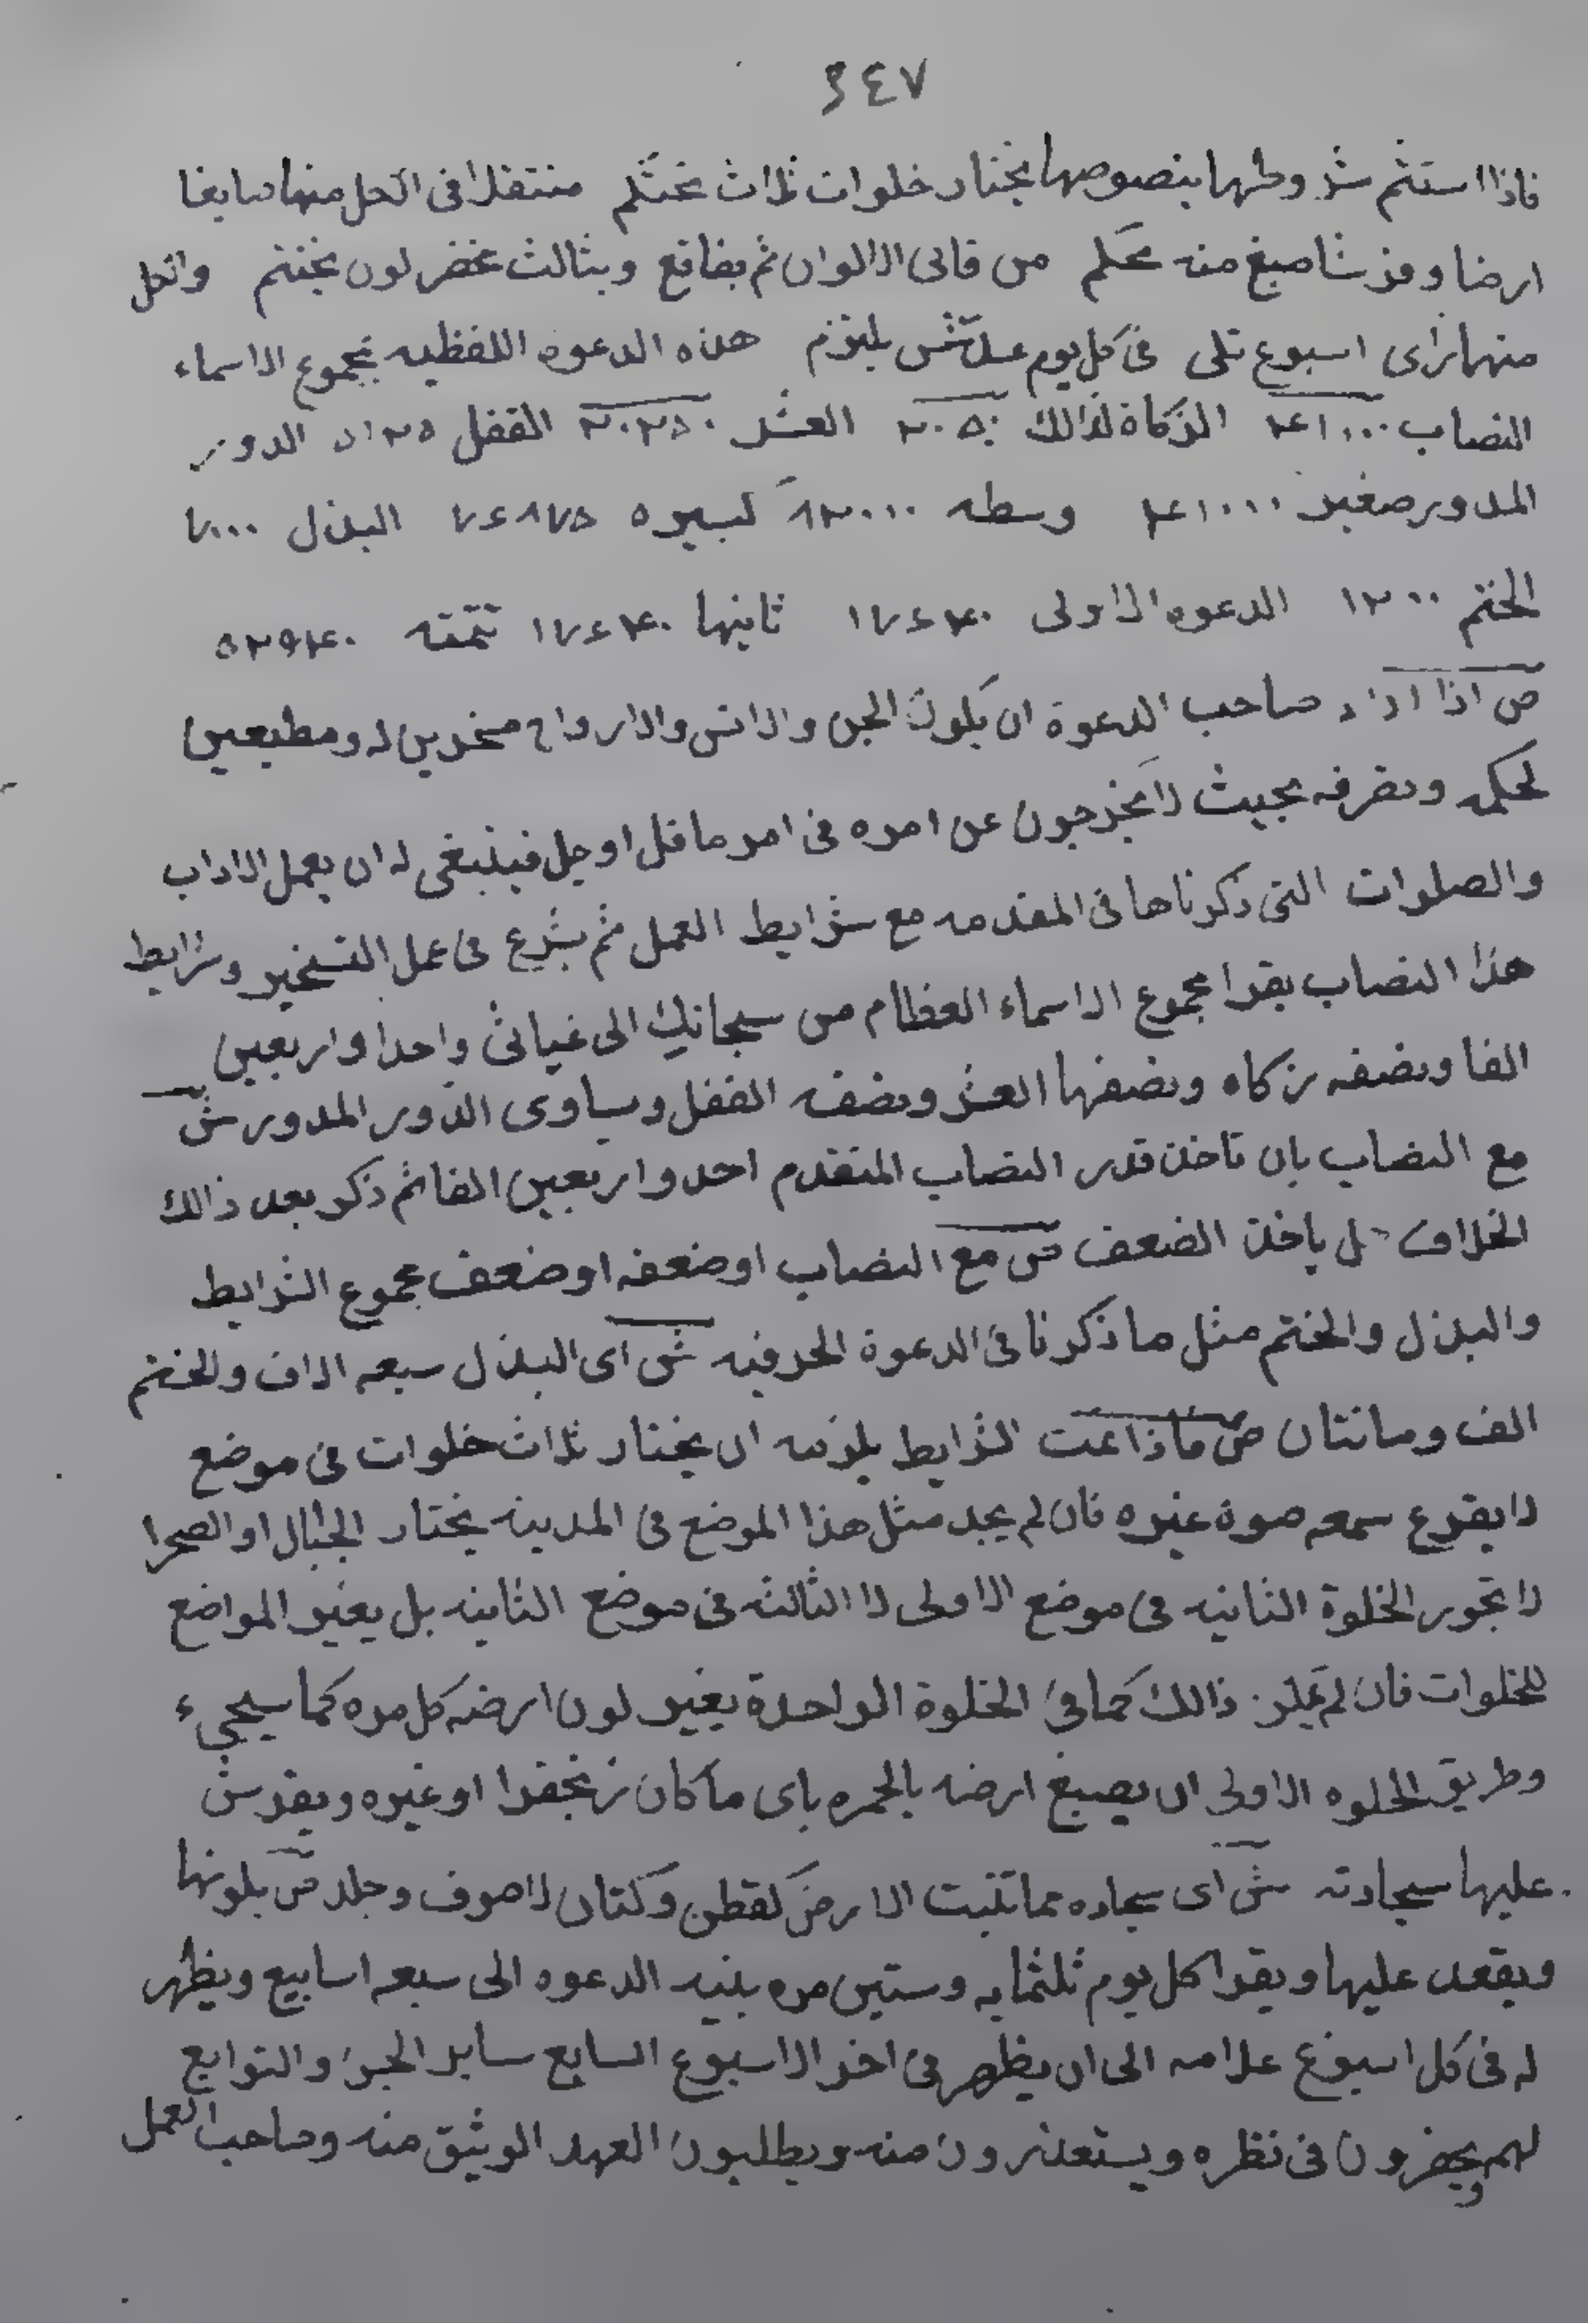 ٣٤٧
فاذا استتم شروطها بنصوصها يختار خلوات ثلاث تختتم منتقلا فى الكل منها صابغا
ارضا وفرشا صبغ منه محكم من قانى الالوان ثم بفاقع وبثالث مخضر لون يختتم والكل
منها اسبوع تلى فى كل يوم يلتزم هذه الدعوه اللفظيه بمجموع الاسماء
النصاب ٤١٠٠٠ الزكاة لذالك ٢٠٥٠٠ العشر ١٠٢٥٠ القفل ٥١٢٥ الدور
المدور صغير ٤١٠٠٠ وسطه ٨٢٠٠٠ كبيره البذل ٧٠٠٠
الختم ١٢٠٠ الدعوه الاولى ١٧٦٤٠ ثانيها ١٧٦٤٠ تتمته
ص اذا اراد صاحب الدعوة ان يكون الجن والانس والارواح مسخرين له ومطيعين
لحكمه وتصرفه بحيث لا يخرجون عن امره فى امر ما قل او جل فينبغى له ان يعمل الاداب
والصلوات التى ذكرناها فى المقدمه مع شرايط العمل ثم يشرع فى عمل التسخير وشرايط
هذا النصاب يقرا مجموع الاسماء العظام من سبحانك الى غياثى واحدا واربعين
الفا ونصفه زكاه ونصفها العشر ونصفه القفل ويساوى الدور المدور ش
مع النصاب بان تاخذ قدر النصاب المتقدم احد واربعين الفا ثم ذكر بعد ذالك
الخلاف هل ياخذ الضعف ص مع النصاب او ضعفه او ضعف مجموع الشرايط
والبذل والختم مثل ما ذكرنا فى الدعوة الحرفيه ش اى البذل سبعه الاف والختم
الف ومائتان ص فاذا تمت الشرايط يلزمه ان يختار ثلاث خلوات فى موضع
لا يقرع سمعه صوة غيره فان لم يجد مثل هذا الموضع فى المدينه يختار الجبال او الصحرا
لا تجوز الخلوة الثانيه فى موضع الاولى لا الثالثه فى موضع الثانيه بل يغير المواضع
للخلوات فان لم ذالك كما فى الخلوة الواحدة يغير لون ارضه كل مره كما سيجىء
وطريق الخلوه الاولى ان يصبغ ارضه بالحمره باى ما كان زنجفرا او غيره ويفرش
عليها سجادته ش اى سجاده مما تنبت الارض كقطن وكتان لا صوف وجلد ص بلونها
ويقعد عليها ويقرا كل يوم ثلثمايه وستين مره بنيه الدعوه الى سبعه اسابيع ويظهر
له فى كل اسبوع علامه الى ان يظهر فى اخر الاسبوع السابع ساير الجن والتوابع
لهم ويحضرون فى نظره ويستعذرون منه ويطلبون العهد الوثيق منه وصاحب العمل